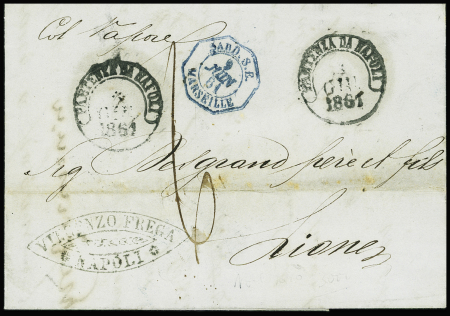 Col Vapore
PARTENZA DA NAPOLI
GIU
1861
SARD. S.E.
9
JUIN
61
MARSEILLE
PARTENZA DA NAPOLI
GIU
1861
Sig Belgrand père et fils
6
Lione
VINCENZO FREGA
NAPOLI